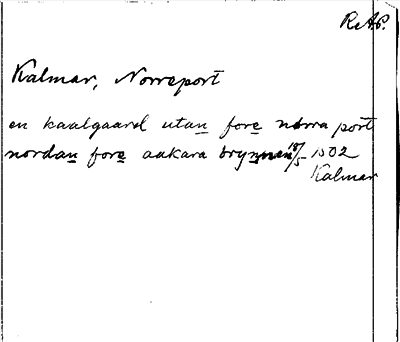 RAP.
Kalmar, Norreport
en kaalgaard utan fore nørra port
nordan fore aakara brynnen 18/5 1502
Kalmar